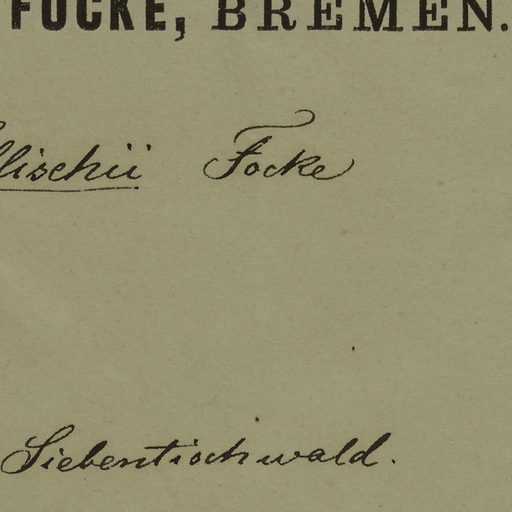 FOCKE, BREMEN.
lischii Focke
Siebentischwald.